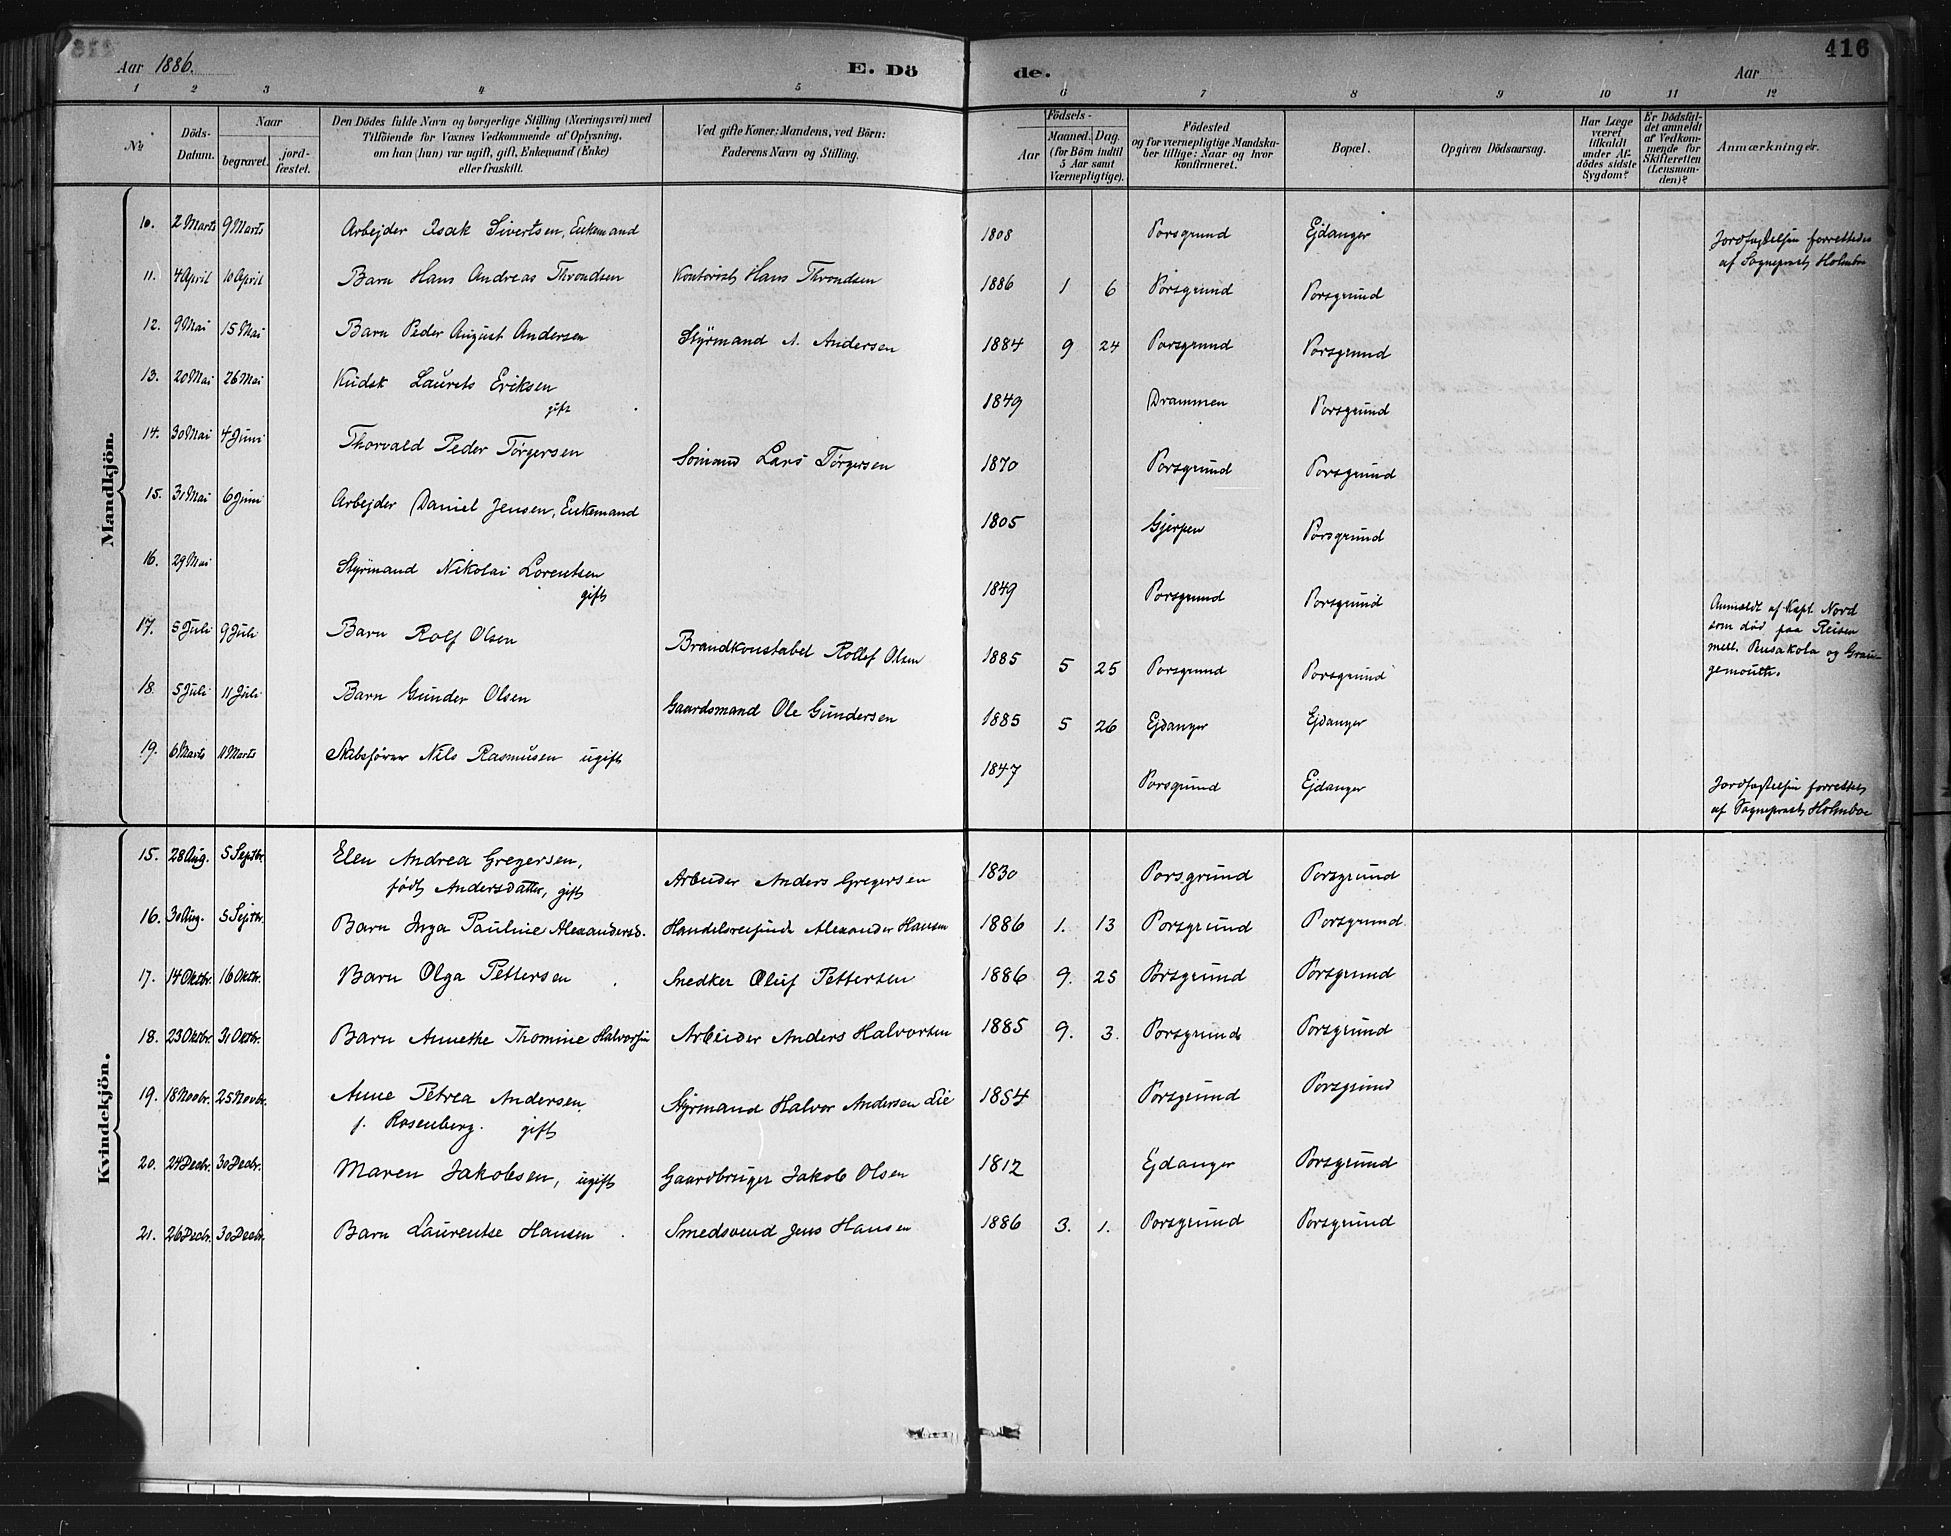 416
Aar 1886. E. Dö de. Aar
1 2 3 4 5 6 7 8 9 10 11 12
No
Döds-Datum.
Naar begravet. jordfæstet.
Den Dödes fulde Navn og borgerlige Stilling (Næringsvei) med Tilföiende for Voxnes Vedkommende af Oplysning, om han (hun) var ugift, gift, Enkemand (Enke) eller fraskilt.
Ved gifte Koner: Mandens, ved Börn: Faderens Navn og Stilling.
Födsels- Aar Maaned. Dag. (for Börn indtil 5 Aar samt Værnepligtige).
Födested og for værnepligtige Mandskaber tillige: Naar og hvor konfirmeret.
Bopæl.
Opgiven Dödsaarsag.
Har Læge været tilkaldt under Afdödes sidste Sygdom?
Er Dödsfaldet anmeldt af Vedkommende for Skifteretten (Lensmanden)?
Anmærkninger.
Mandkjön.
10. 2 Marts 9 Marts Arbejder Isak Sivertsen, Enkemand 1808 Porsgrund Ejdanger Jordfæstelsen forrettedes af Sogneprest Holmboe
11. 4 April 10 April Barn Hans Andreas Throndsen Kontorist Hans Throndsen 1886 1 6 Porsgrund Porsgrund
12. 9 Mai 15 Mai Barn Peder August Andersen Styrmand A. Andersen 1884 9 24 Porsgrund Porsgrund
13. 20 Mai 26 Mai Kudsk Laurits Eriksen gift 1849 Drammen Porsgrund
14. 30 Mai 4 Juni Thorvald Peder Torgersen Sömand Lars Torgersen 1870 Porsgrund Porsgrund
15. 31 Mai 6 Juni Arbejder Daniel Jensen, Enkemand 1805 Gjerpen Porsgrund
16. 29 Mai Styrmand Nikolai Lorentsen gift 1849 Porsgrund Porsgrund Anmeldt af Kapt. Nord som död paa Reisen mell. Pensakola og Grangemouth.
17. 5 Juli 9 Juli Barn Rolf Olsen Brandkonstabel Rollef Olsen 1885 5 25 Porsgrund Porsgrund
18. 5 Juli 11 Juli Barn Gunder Olsen Gaardsmand Ole Gundersen 1885 5 26 Ejdanger Ejdanger
19. 6 Marts 11 Marts Skibsförer Nils Rasmusen ugift 1847 Porsgrund Ejdanger Jordfæstelsen forrettet af Sogneprest Holmboe
Kvindekjön.
15. 28 Aug. 5 Septbr. Elen Andrea Gregersen, födt Andersdatter, gift Arbeider Anders Gregersen 1830 Porsgrund Porsgrund
16. 30 Aug. 5 Septbr. Barn Inga Pauline Alexandersd. Handelsreisende Alexander Hansen 1886 1. 13 Porsgrund Porsgrund
17. 14 Oktbr. 16 Oktbr. Barn Olga Pettersen Snedker Oluf Pettersen 1886 9. 25 Porsgrund Porsgrund
18. 23 Oktbr. 31 Oktbr. Barn Annethe Thomine Halvorsen Arbeider Anders Halvorsen 1885 9. 3. Porsgrund Porsgrund
19. 18 Novbr. 25 Novbr. Anne Petrea Andersen f. Rosenberg. gift Styrmand Halvor Andersen Lie 1854 Porsgrund Porsgrund
20. 24 Decbr. 30 Decbr. Maren Jakobsen, ugift Gaardbruger Jakob Olsen 1812 Ejdanger Porsgrund
21. 26 Decbr. 30 Decbr. Barn Laurentse Hansen Smedsvend Jens Hansen 1886 3. 1. Porsgrund Porsgrund